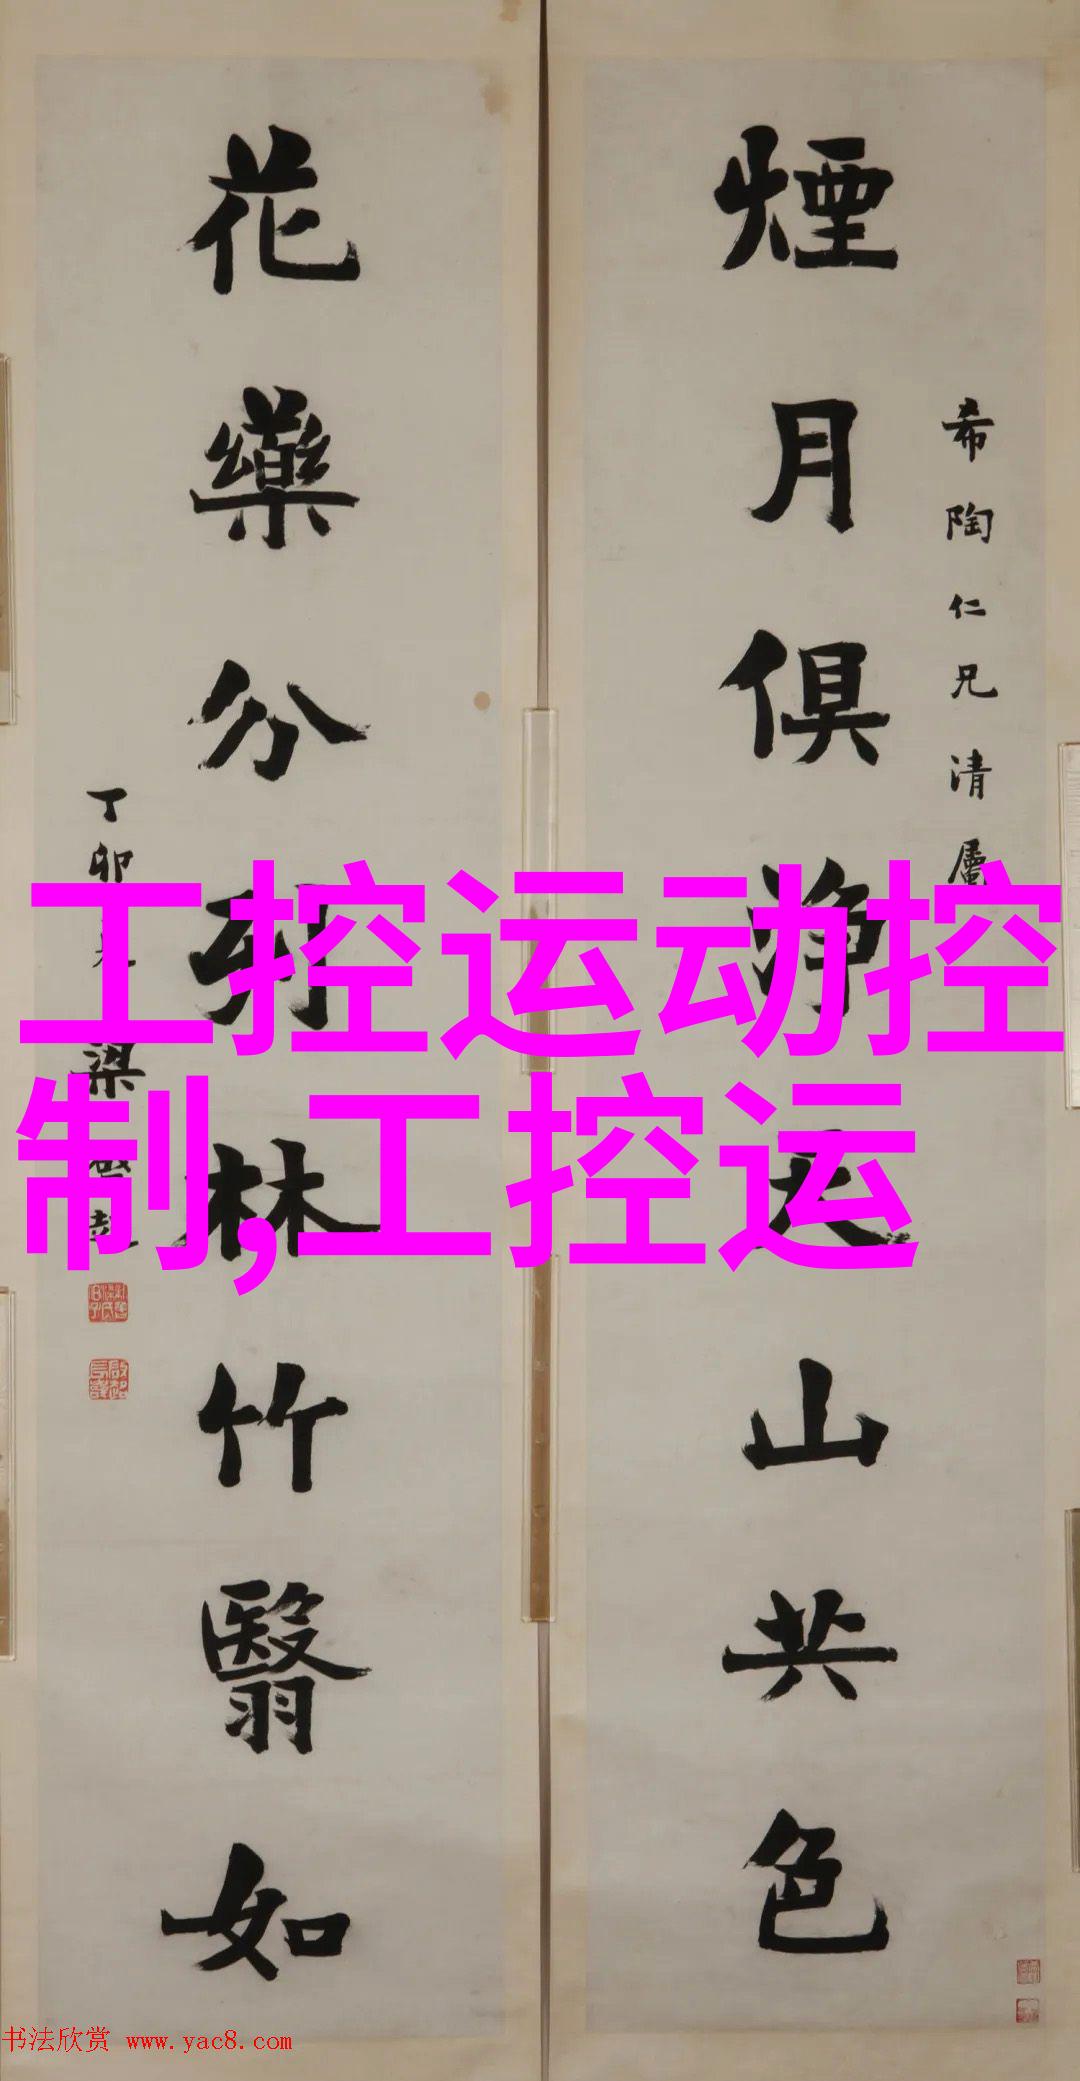 煙月俱淨天山共色
希陶仁兄清屬
花藥分列林竹翳如
丁卯
梁啟超
工控运动控
制,工控运
书法欣赏 www.yac8.com